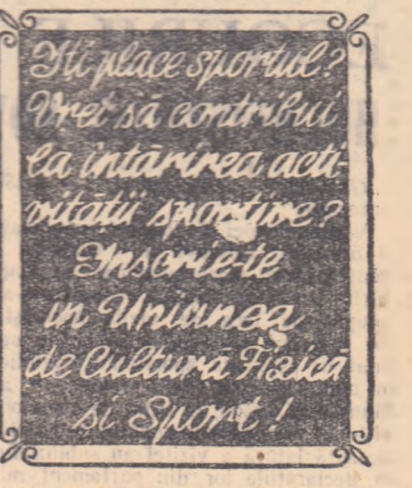 Iti place sportul?
Vrei să contribui
la intărirea acti-
vității sportive?
Inscrie-te
in Uniunea
de Cultură Fizică
si Sport!